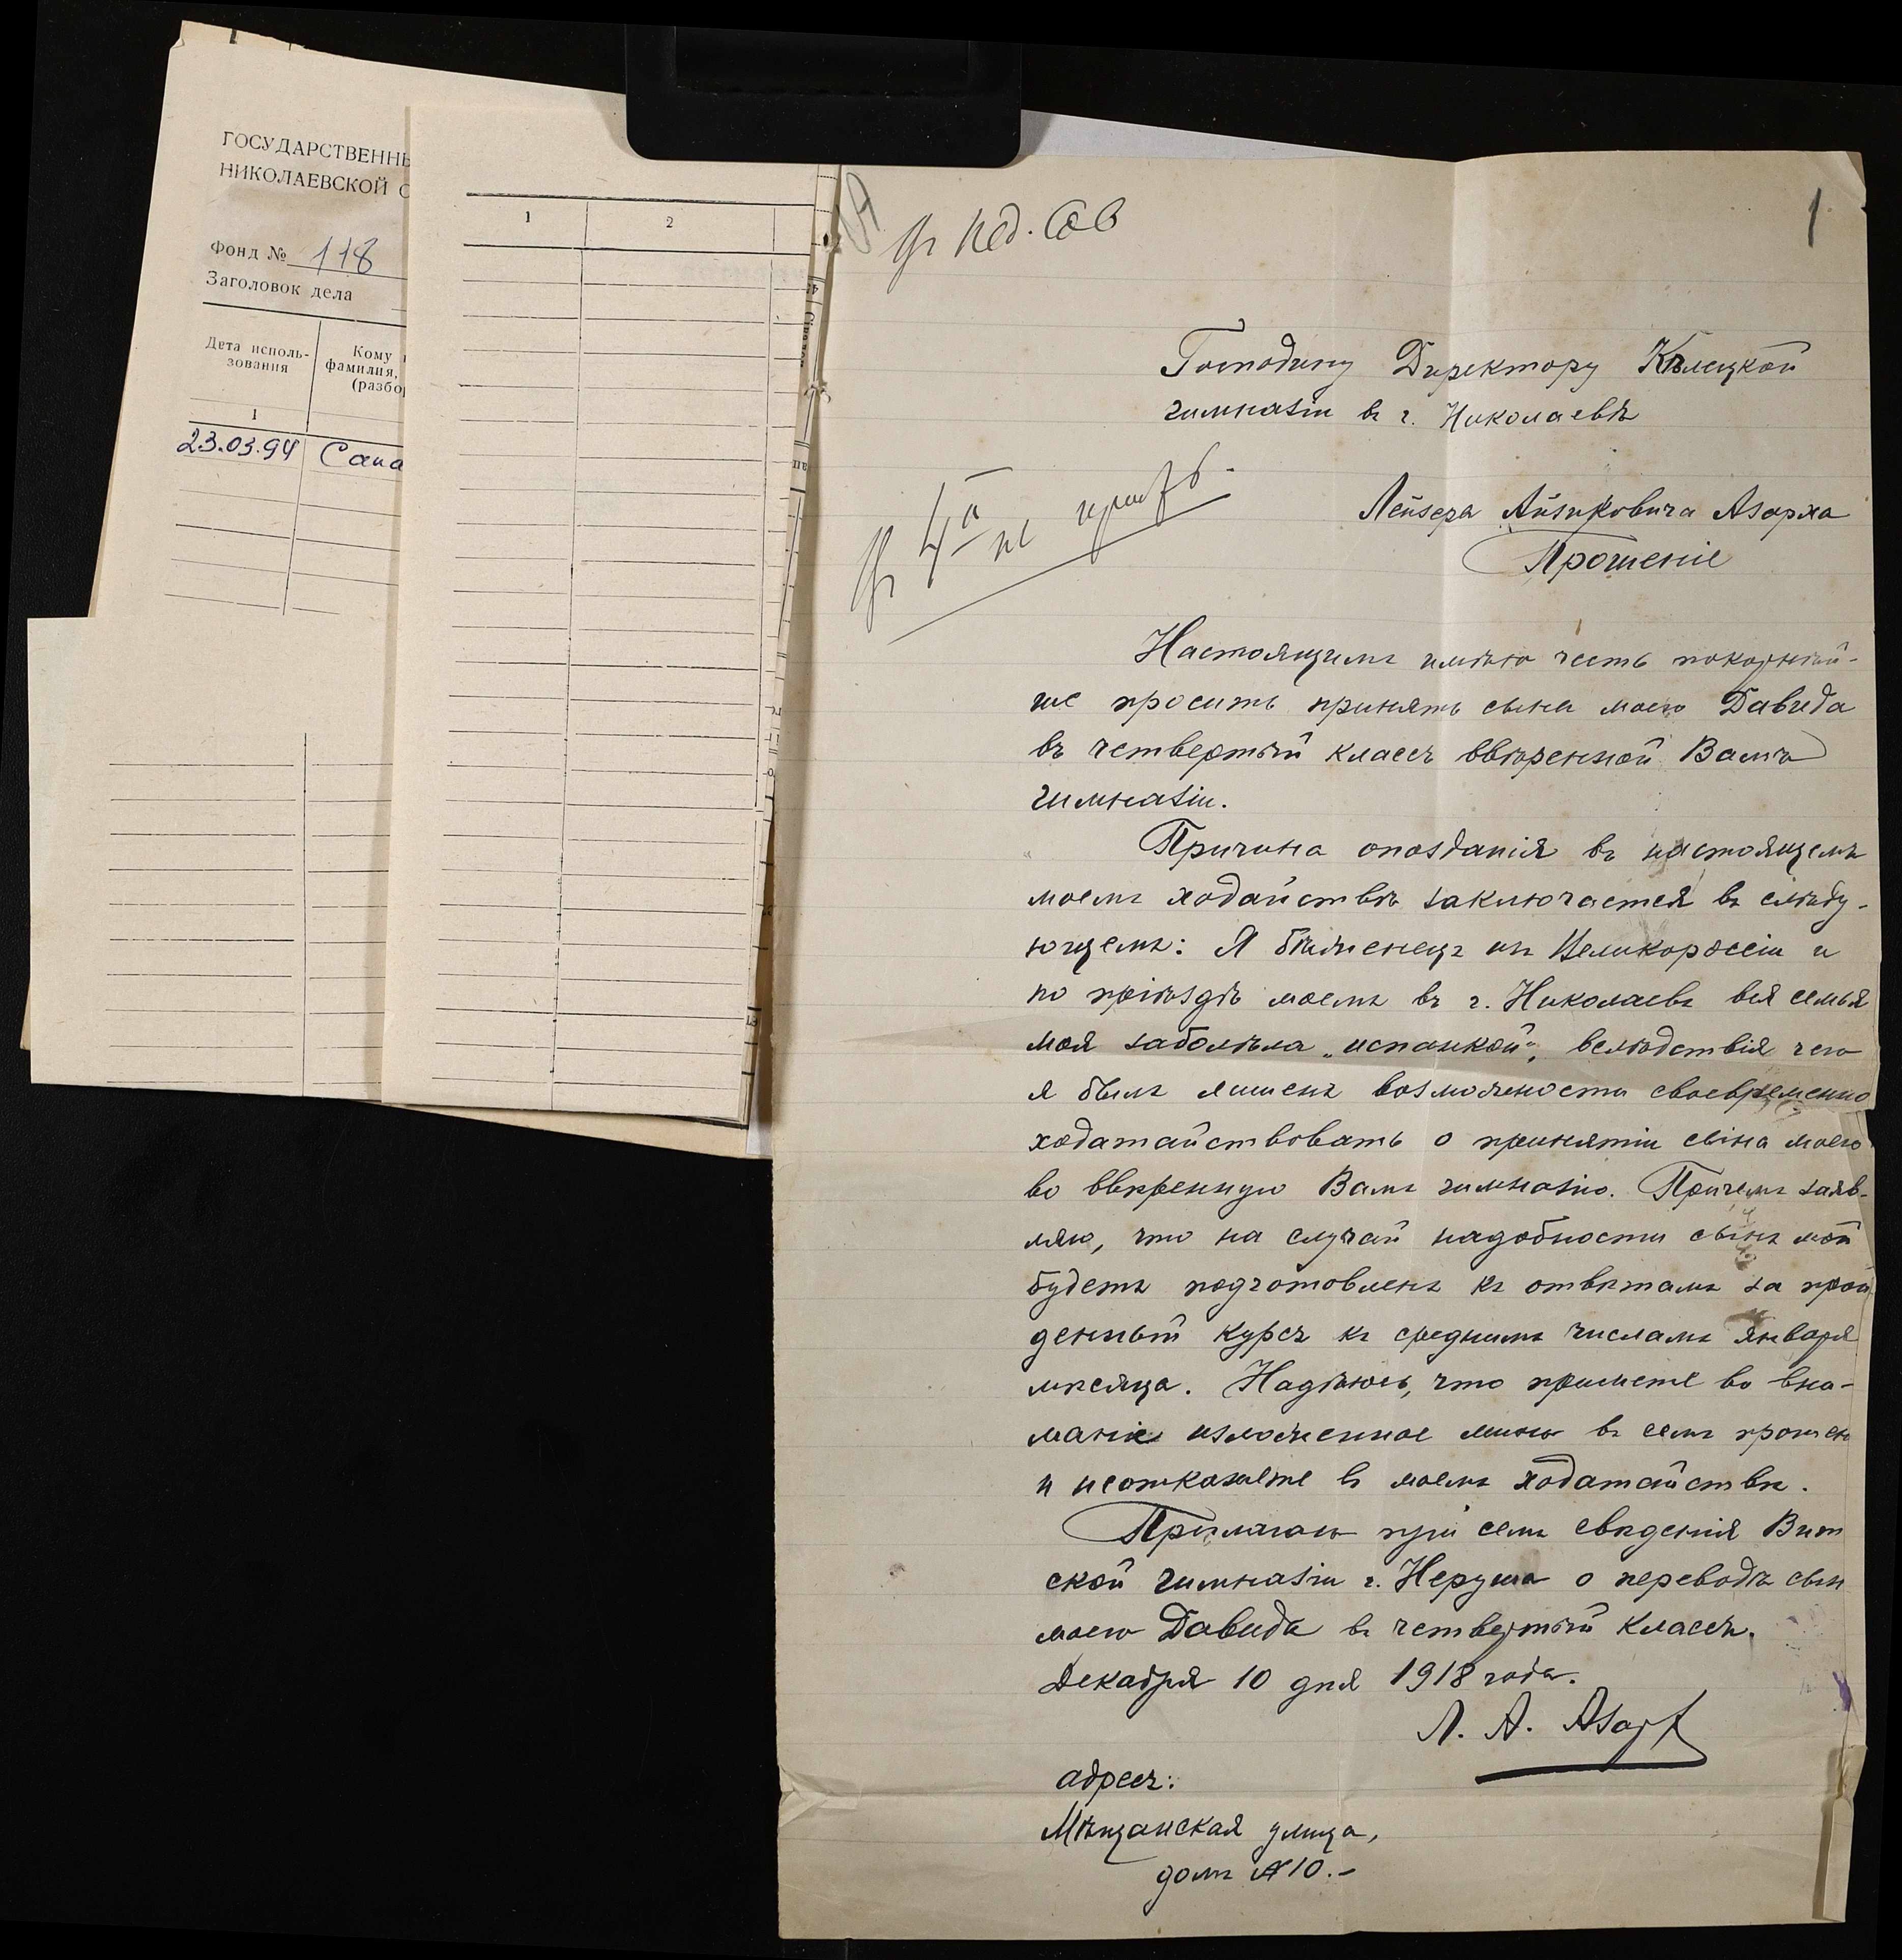 ГОСУДАРСТВЕННЫ
НИКОЛАЕВСКОЙ О
Фонд № 118
Заголовок дела
Дата исполь-
зования
Кому
фамилия,
(разбо
1
23.03.94
1 2
1
Въ Пед. Сов
Господину Директору Кѣлецкой
гимназіи въ г. Николаевѣ
Лейзера Айзиковича Азарха
Прошеніе
Въ 4й кл
Настоящимъ имѣю честь покорнѣй-
ше просить принять сына моего Давида
въ четвертый классъ ввѣренной Вамъ
гимназіи.
Причина опозданія въ настоящемъ
моемъ ходайствѣ заключается въ слѣду-
ющемъ: Я бѣженецъ изъ Великороссіи и
по пріѣздѣ моемъ въ г. Николаевъ вся семья
моя заболѣла „испанкой“, вслѣдствія чего
я былъ лишенъ возможности своевременно
ходатайствовать о принятіи сына моего
во ввѣренную Вамъ гимназію. Причемъ заяв-
ляю, что на случай надобности сынъ мой
будетъ подготовленъ къ отвѣтамъ за прой
денный курсъ къ среднимъ числамъ января
мѣсяца. Надѣюсь, что примете во вни-
маніе изложенное мною въ семъ прошен
и неоткажете въ моемъ ходатайствѣ.
Прилагаю при семъ свѣденія Вит
ской гимназіи г. Неруша о переводѣ сын
моего Давида въ четвертый классъ.
Декабря 10 дня 1918 года.
Л. А. Азарх
адресъ:
Мѣщанская улица,
домъ № 10.-